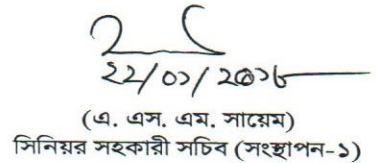 ২২/০১/২০২৬
(এ. এস. এম. সায়েম)
সিনিয়র সহকারী সচিব (সংস্থাপন-১)